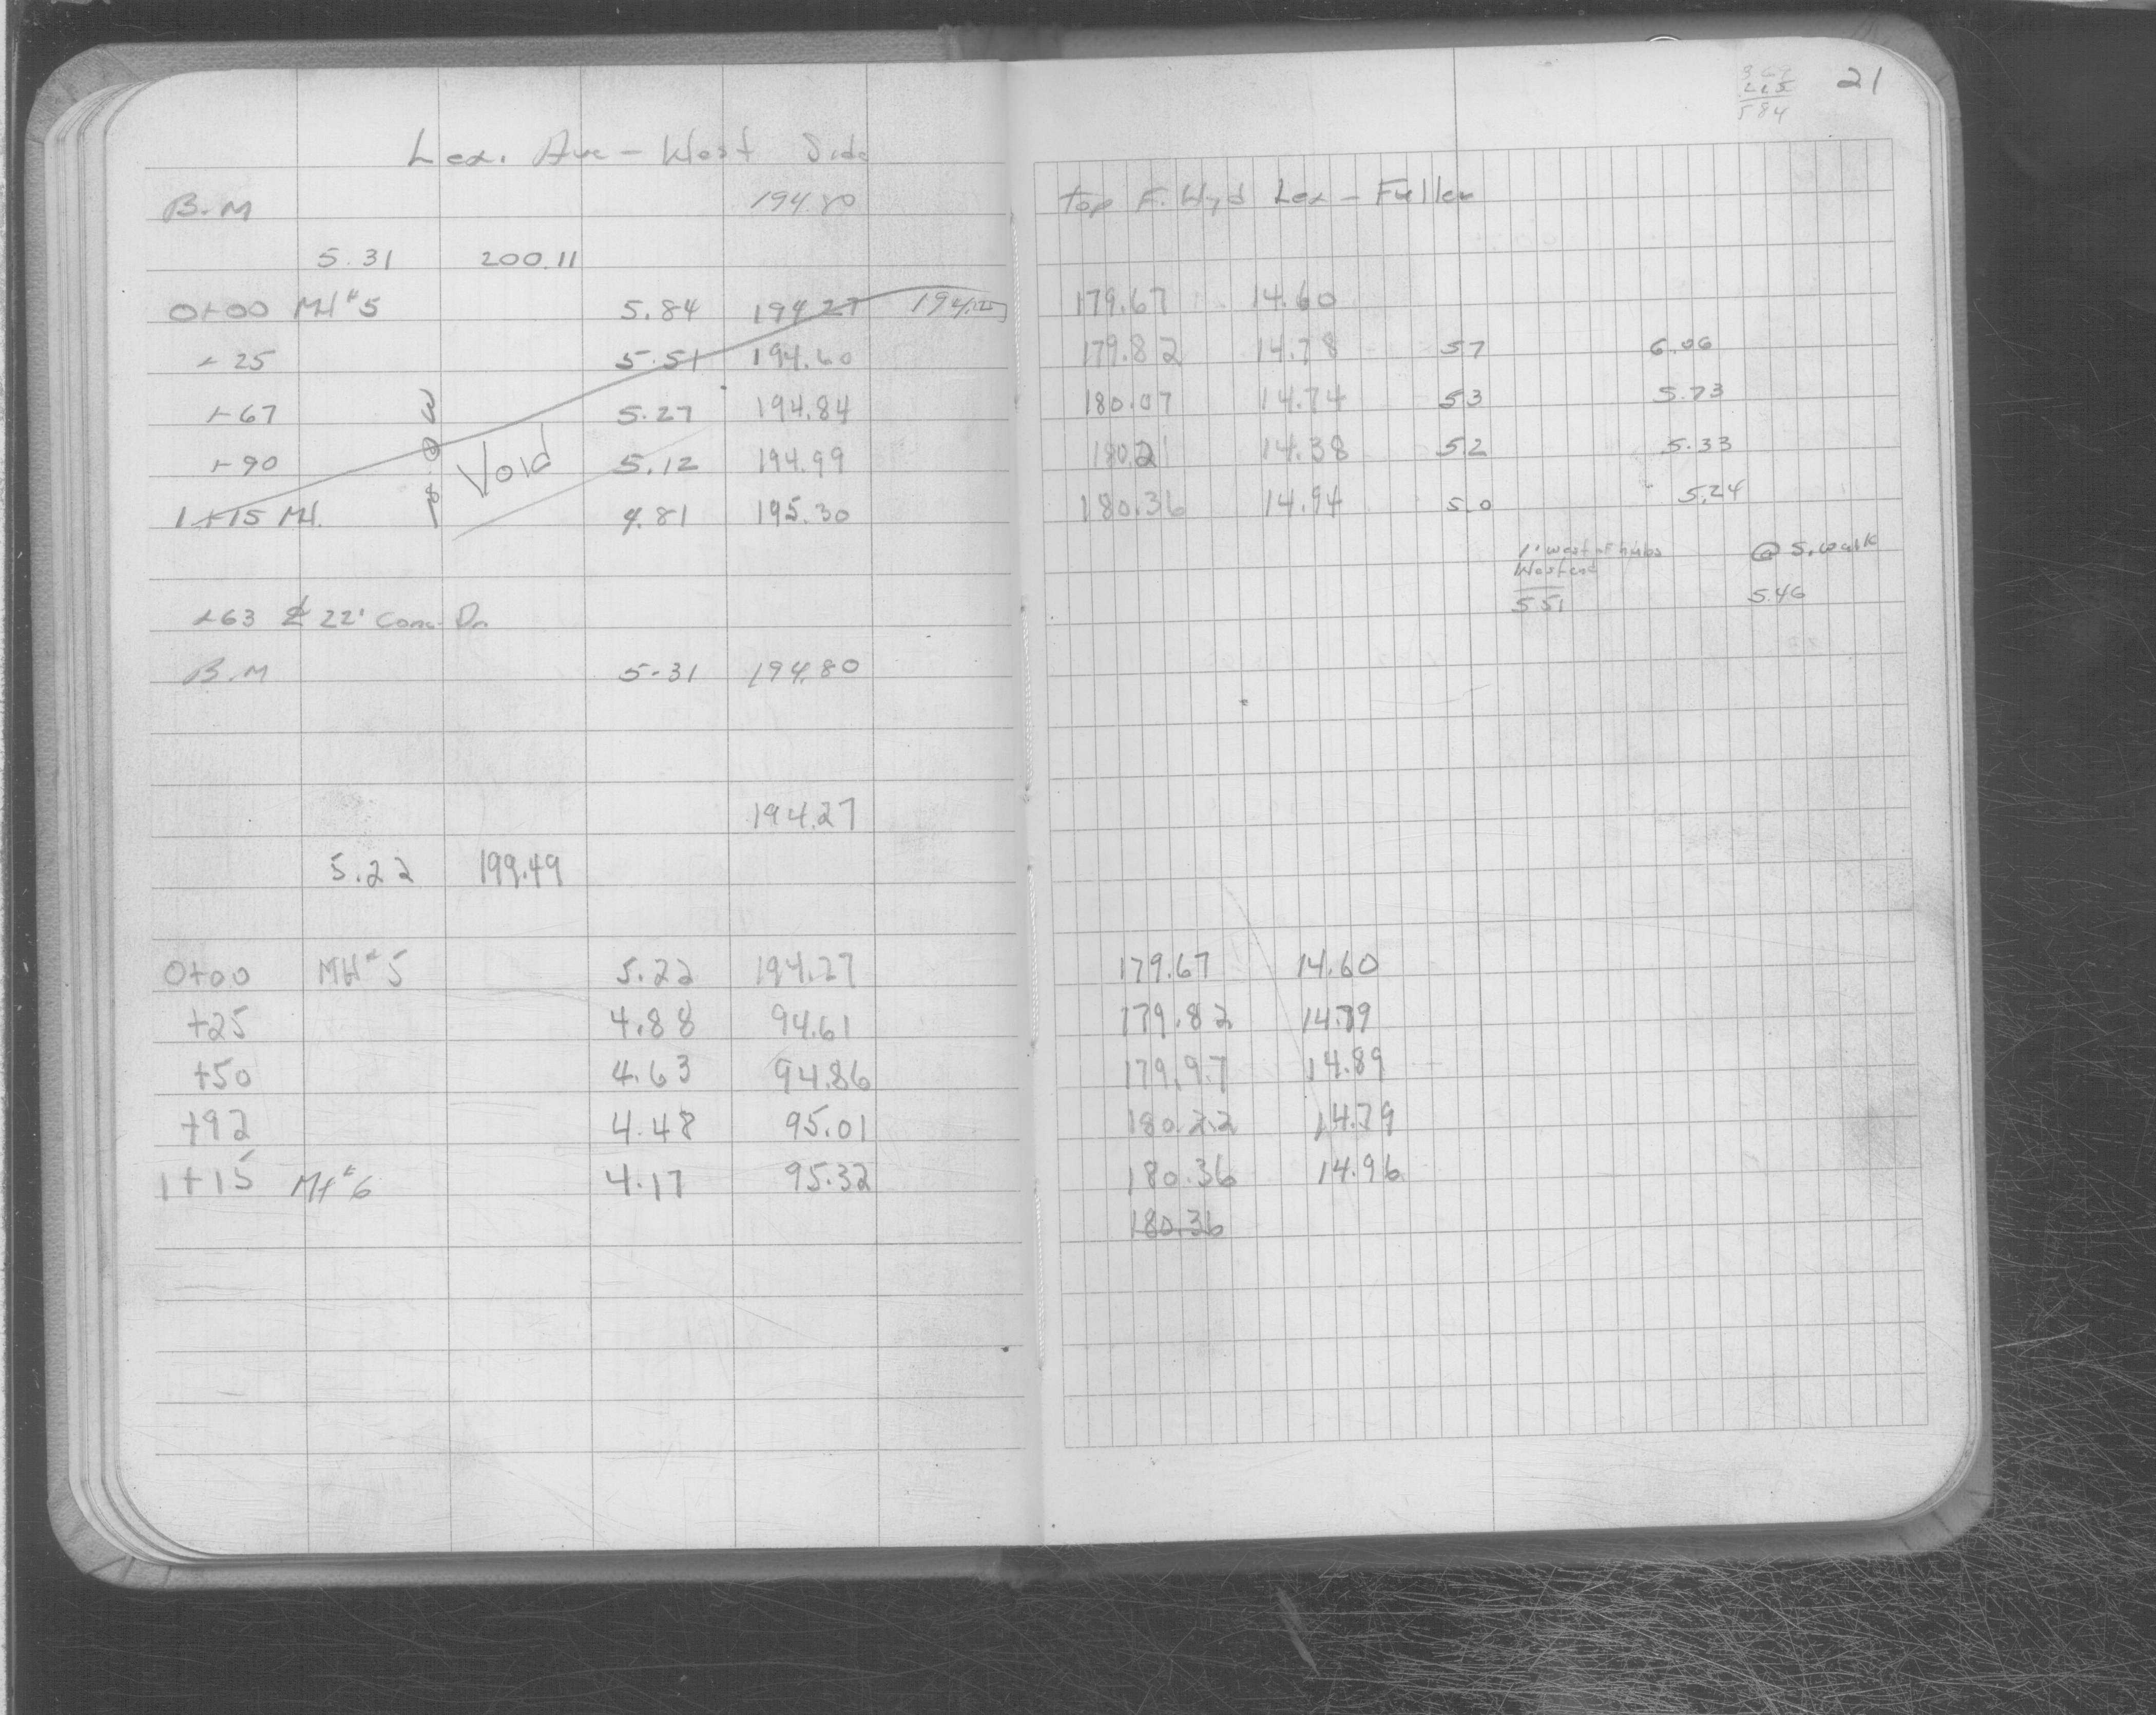 21
Lex. Ave - West Side
B.M 194.80 top F. Hyd Lex - Fuller
5.31 200.11
0+00 MH#5 5.84 194.27 179.67 14.60
+25 5.51 194.60 179.82 14.78 57 6.06
+67 5.27 194.84 180.07 14.74 53 5.73
+90 Void 5.12 194.99 180.21 14.38 52 5.33
1+15 MH. 4.81 195.30 180.36 14.94 5.0 5.24
1' west of hubs @ S. walk
West end
+63 ℄ 22' Conc. Dr. 5.51 5.46
B.M 5.31 194.80
194.27
5.22 199.49
0+00 MH#5 5.22 194.27 179.67 14.60
+25 4.88 94.61 179.82 14.79
+50 4.63 94.86 179.97 14.89
+92 4.48 95.01 180.22 14.79
1+15 MH#6 4.17 95.32 180.36 14.96
180.36